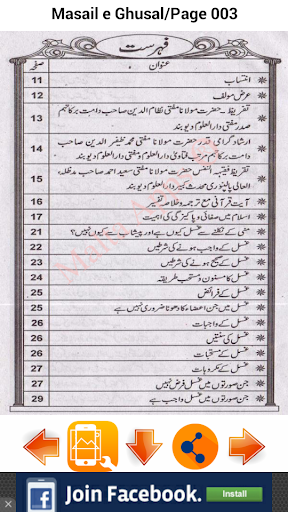 Masail e Ghusal/Page 003
فہرست
عنوان صفحہ
انتساب 11
عرض مولف 12
تقریظ۔ حضرت مولانا مفتی نظام الدین صاحب دامت برکاتہم 13
صدر مفتی دارالعلوم دیوبند
ارشاد گرامی قدر حضرت مولانا مفتی محمد ظفیر الدین صاحب 14
دامت برکاتہم مرتب فتاوی دارالعلوم دیوبند
حضرت مولانا مفتی سعید احمد صاحب مدظلہ 15
العالی پالنپوری محدث کبیر دارالعلوم دیوبند
آیت قرآنی مع ترجمہ و خلاصہ تفسیر 16
اسلام میں صفائی و پاکیزگی کی اہمیت 17
منی کے نکلنے سے غسل کیوں ہے اور پیشاب سے کیوں نہیں؟ 21
غسل کے واجب ہونے کی شرطیں 22
غسل کے صحیح ہونے کی شرطیں 22
غسل کا مسنون و مستحب طریقہ 24
غسل کے فرائض 24
غسل میں جن اعضاء کا دھونا ضروری نہیں ہے 25
غسل کے واجبات 26
غسل کی سنتیں 26
غسل کے مستحبات 26
غسل کے مکروہات 27
جن صورتوں میں غسل فرض نہیں 27
جن صورتوں میں غسل واجب ہے 29
Join Facebook.
Install